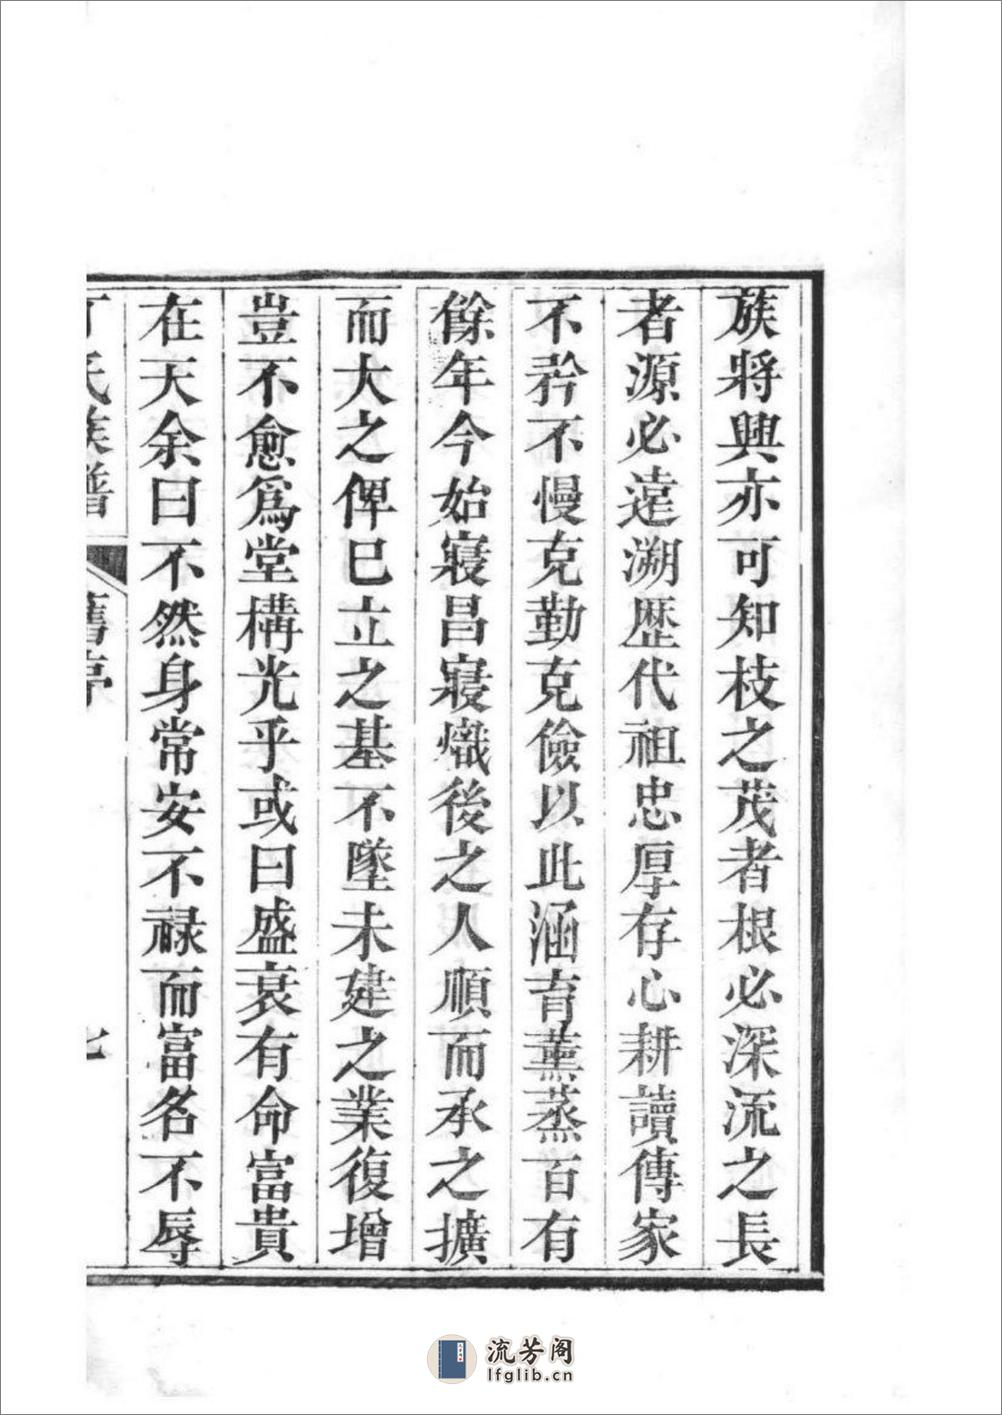 族將興亦可知枝之茂者根必深流之長
者源必遠溯歴代祖忠厚存心耕讀傳家
不矜不慢克勤克儉以此涵育薰蒸百有
餘年今始寖昌寖熾後之人順而承之擴
而大之俾已立之基不墜未建之業復增
豈不愈爲堂構光乎或曰盛衰有命富貴
在天余曰不然身常安不禄而富名不辱
丁氏族譜 舊序 七
流芳阁
lfglib.cn